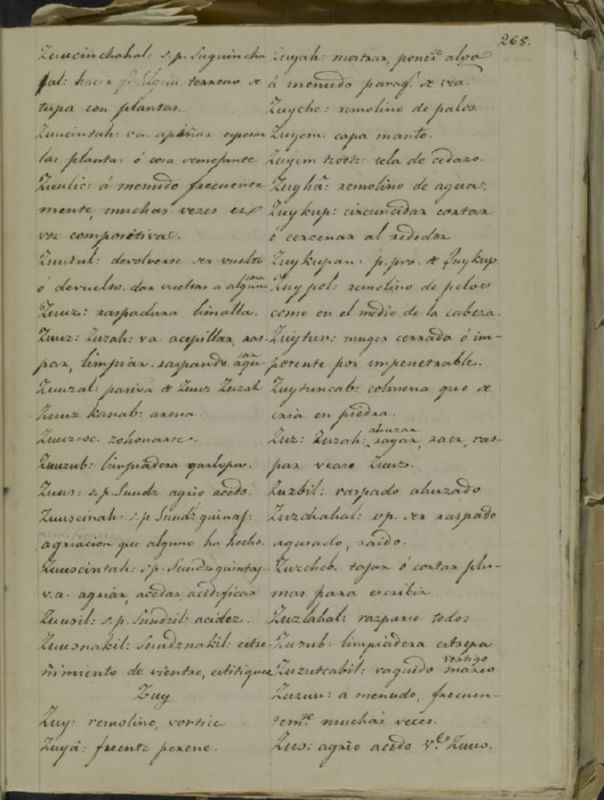 268.
Zuucinchahal: s.p. Suquincha
hal: hacer q.e algun terreno se
tupa con plantas.
Zuucintah: va. apiñar espesar
las plantas ó cosa semejante
Zuulic: á menudo frecuente
mente, muchas vezes es
voz compositiva.
Zuutul: devolverse ser vuelto
ó devuelto. dar vueltas a alguna cosa
Zuuz: raspadura limalla.
Zuuz: Zuzah: va. acepillar, ras-
par, limpiar. raspando
Zuuzal: pasiva de Zuuz Zuzah
Zuuz kanab: arena.
Zuuz-se. zohonarse.
Zuuzub: limpiadera garlopa.
Zuus: s.p. Suudz agrio acedo.
Zuuscinah: s.p. Suudz quinaj.
agriacion que alguno ha hecho.
Zuuscintah: s.p. Suudzquintaj.
v.a. agriar, acedar acidificar
Zuusil: s.p. Suudzil: acidez.
Zuusnakil: Suudznakil: estre-
ñimiento de vientre, estitiquez
Zuy
Zuy: remolino, vortice
Zuyá: fuente perene.
Zuyah: mostrar, poner.se algo
á menudo paraq.e se vea.
Zuyche: remolino de palos.
Zuyem: capa manto.
Zuyem tzotz: tela de cedazo.
Zuyhá: remolino de agua.
Zuykup: circuncidar cortar
ó cercenar al rededor
Zuykupan: p. pro. de Zuykup.
Zuypol: remolino de pelos
como en el medio de la cabeza.
Zuytun: muger cerrada ó im-
potente por impenetrable.
Zuytuncab: colmena que se
cria en piedra.
Zuz: Zuzah: ahuzar rayar, raer, ras-
par vease Zuuz.
Zuzbil: raspado ahuzado
Zuzchahal: vp. ser raspado
agusado, raido.
Zuzcheb. tajar ó cortar plu-
mas para escribir
Zuzlahal: rasparse todos
Zuzub: limpiadera estrepa
Zuzutcabil: vaguido vertigo mareo
Zuzuu: á menudo, frecuen-
tem.te muchas veces.
Zus: agrio acedo v.se Zuus.